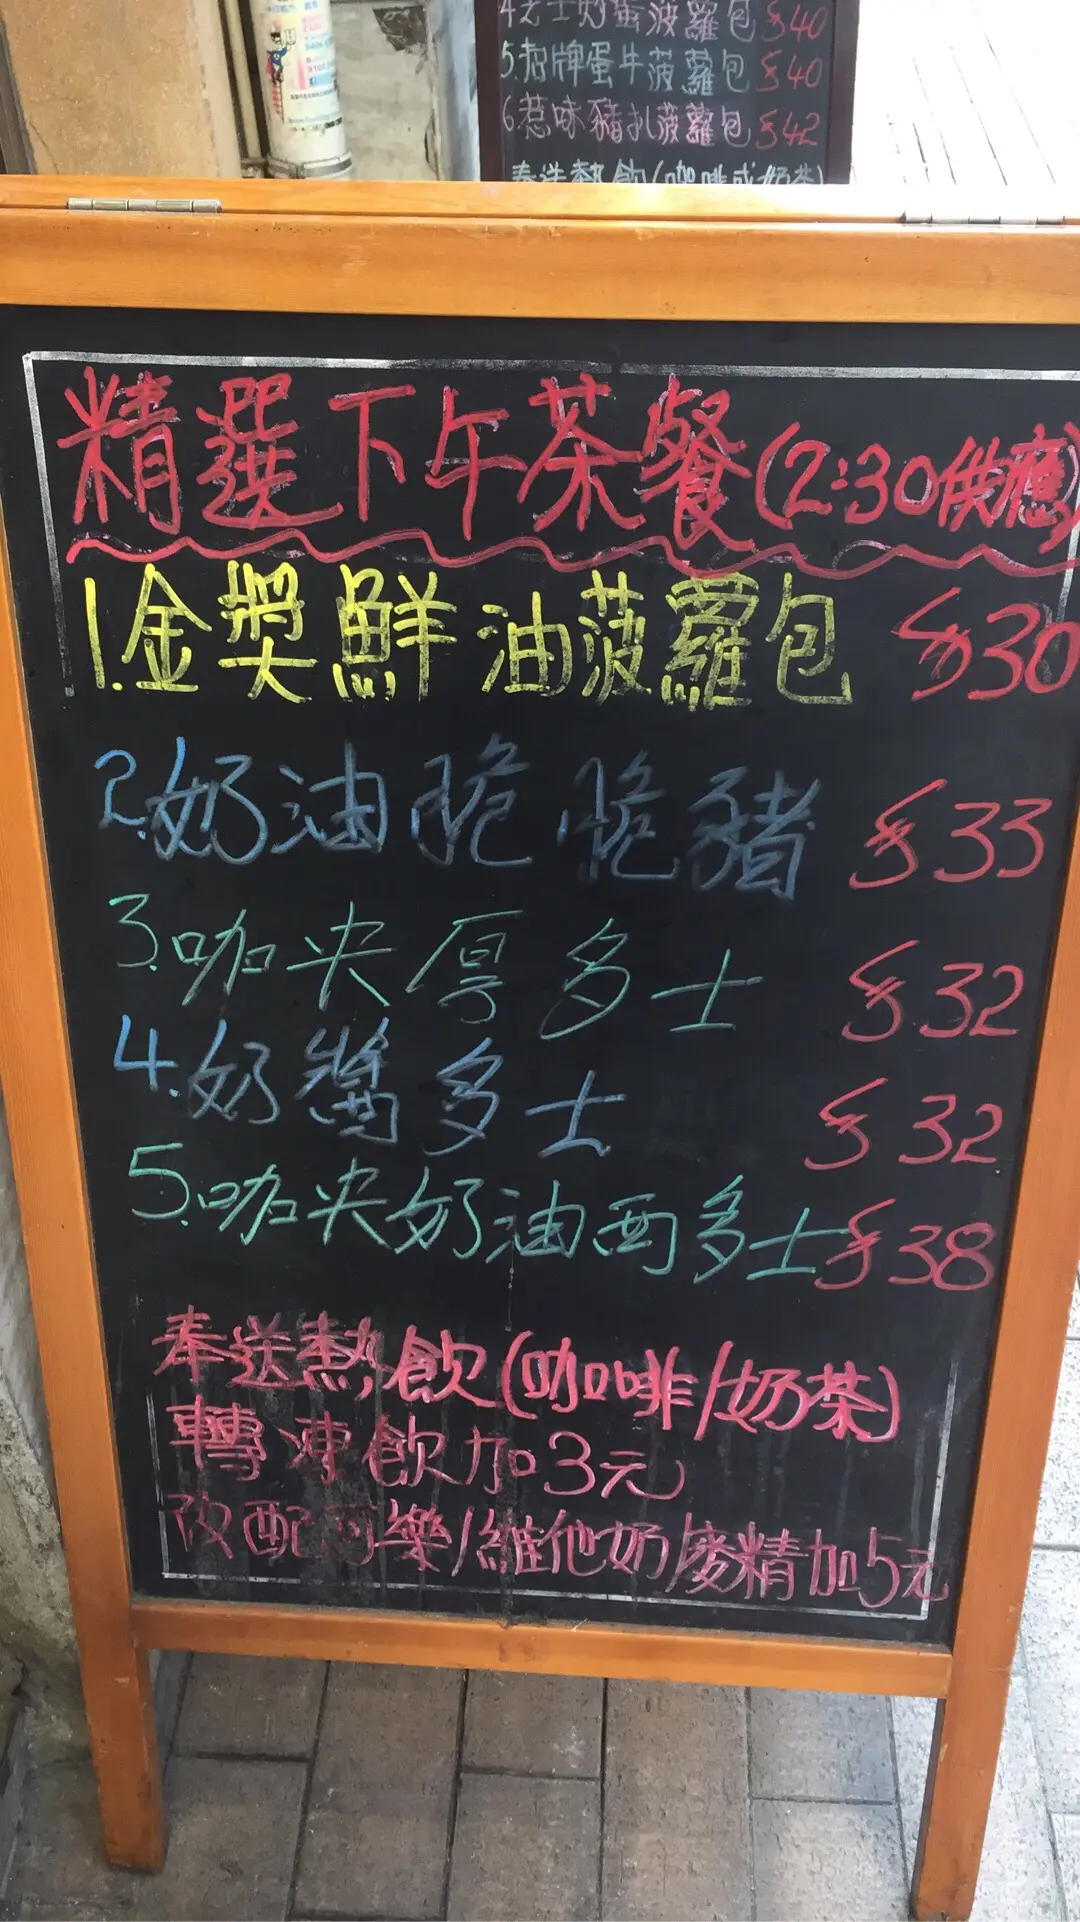 4.芝士炒蛋菠蘿包 $40
5.招牌蛋牛菠蘿包 $40
6.惹味豬扒菠蘿包 $42
奉送熱飲(咖啡或奶茶)
精選下午茶餐(2:30供應)
1.金獎鮮油菠蘿包 $30
2.奶油脆脆豬 $33
3.咖央厚多士 $32
4.奶醬多士 $32
5.咖央奶油西多士 $38
奉送熱飲(咖啡/奶茶)
轉凍飲加3元
改配可樂/維他奶/麥精加5元